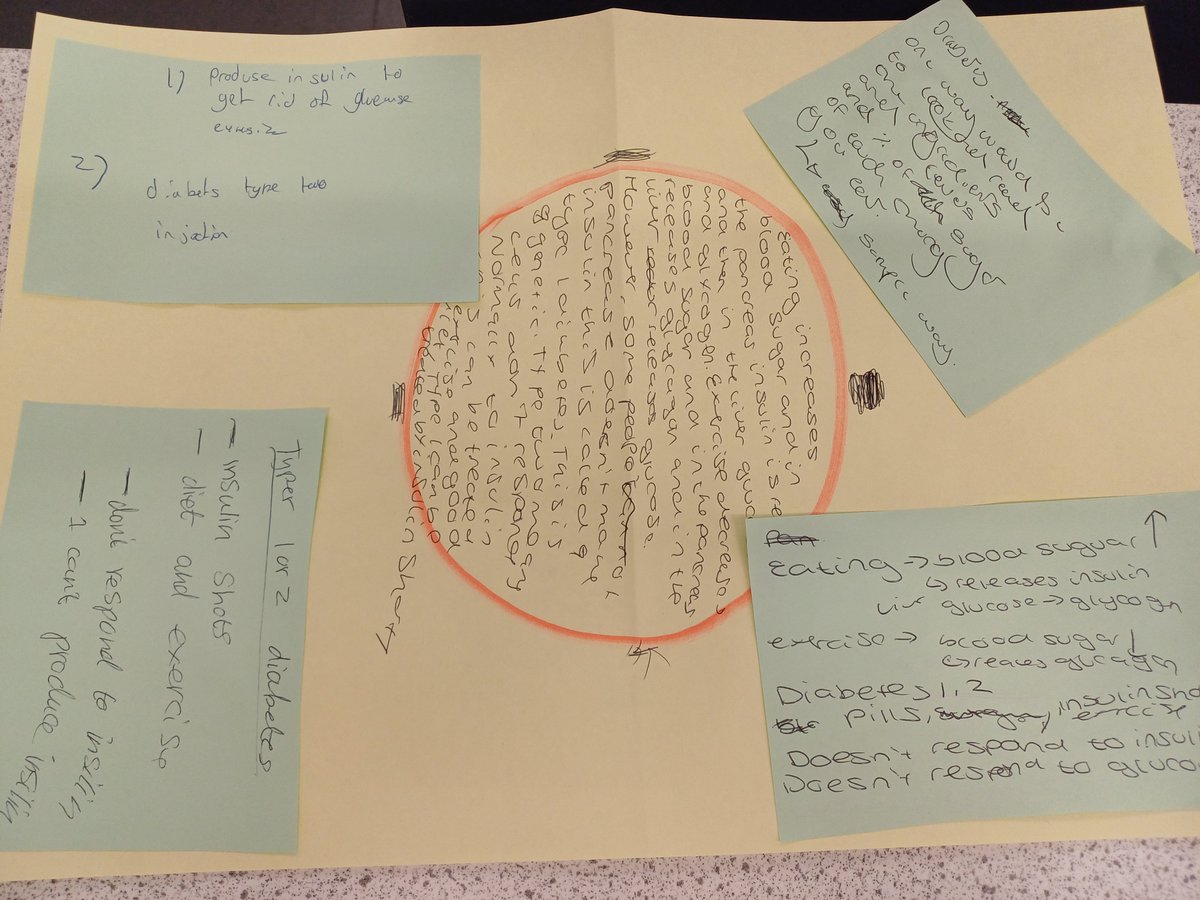 1) produse insulin to
get rid of gluecuse
2)
diabets type two
injection
Diabetes
one way would be
to look and read
the ingredients
and levels
and % of sugar
of each
you eat.
simple way.
Eating increases
blood sugar and in
the pancreas insulin is re
and then in the liver gluc
and glycogen. Exercise decreases
blood sugar and in the pancreas
releases glucagon and in the
liver release glucose.
However, some people
pancrease doesn't make
insulin this is called
type 1 diabetes. This is
genetic. Type two
cells don't respond
normally to insulin
can be treated
exercise and good
diet. Type 1 can be
treated by insulin shorts
Typer 1 or 2 diabetes
– insulin shots
– diet and exercise
– don't respond to insilin
– 1 can't produce insilin
Eating → blood suguar ↑
↳ releases insulin
glucose → glycogn
exercise → blood sugar ↓
Diabetes 1, 2
pills, insulin sho
exrcise
Doesn't respond to insuli
Doesn't respond to gluco